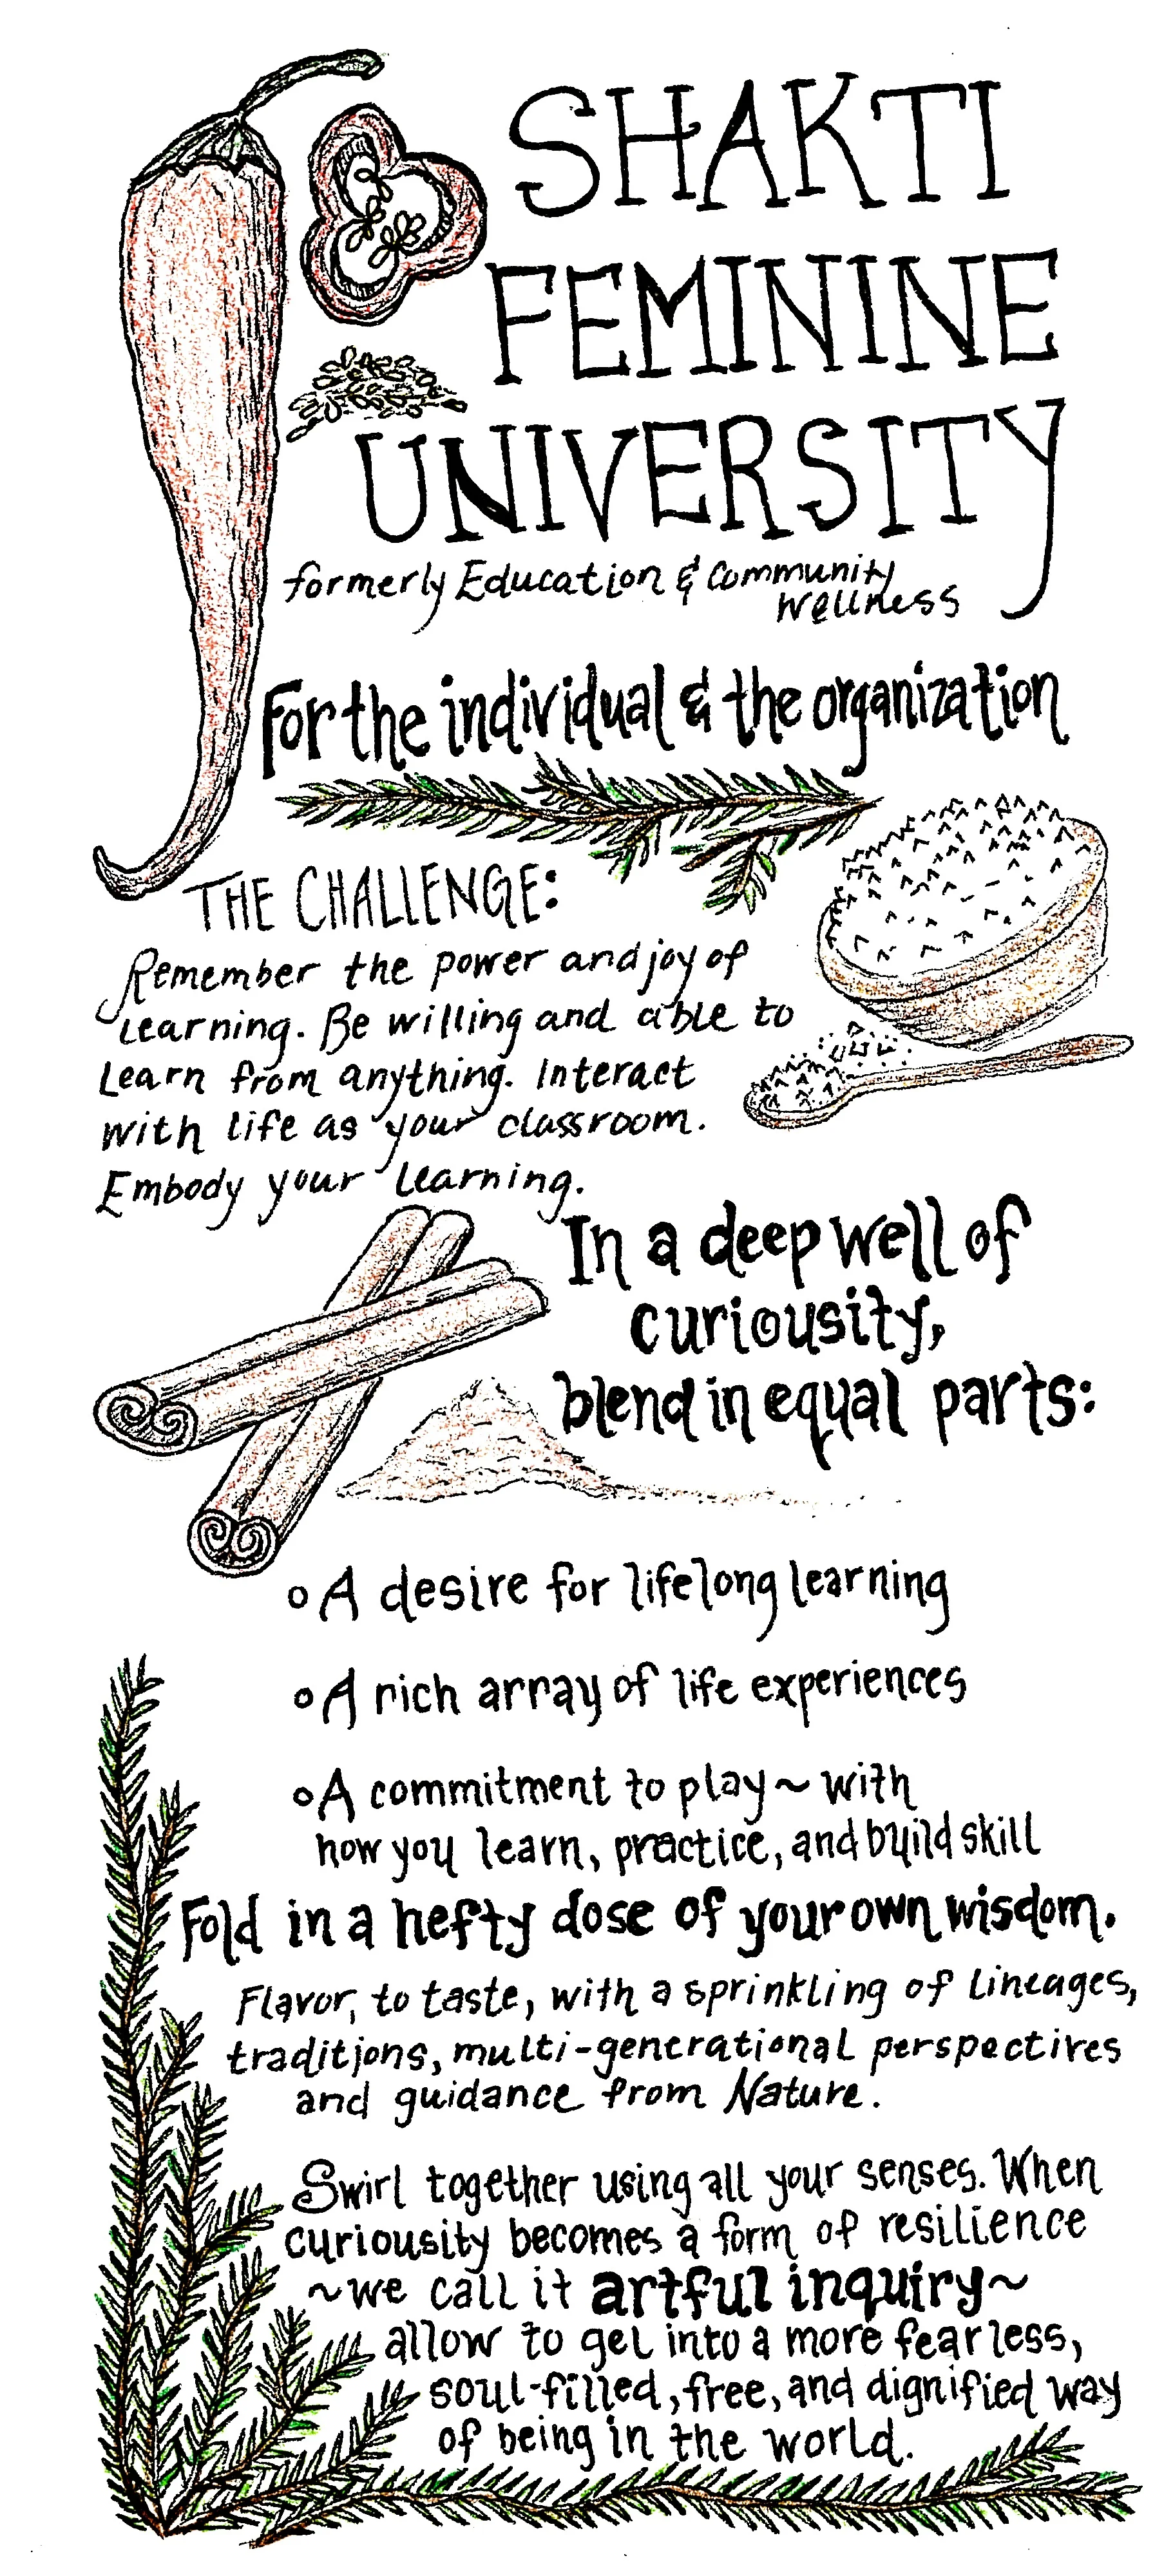 SHAKTI
FEMININE
UNIVERSITY
formerly Education & Community
Wellness
For the individual & the organization
THE CHALLENGE:
Remember the power and joy of
learning. Be willing and able to
learn from anything. Interact
with life as your classroom.
Embody your learning.
In a deep well of
curiousity,
blend in equal parts:
o A desire for lifelong learning
o A rich array of life experiences
o A commitment to play ~ with
how you learn, practice, and build skill
Fold in a hefty dose of your own wisdom.
Flavor, to taste, with a sprinkling of lineages,
traditions, multi-generational perspectives
and guidance from Nature.
Swirl together using all your senses. When
curiousity becomes a form of resilience
~ we call it artful inquiry ~
allow to gel into a more fearless,
soul-filled, free, and dignified way
of being in the world.